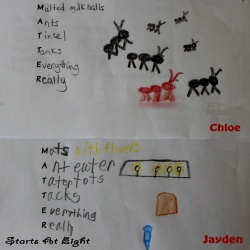 Malted milk balls
Ants
Tinsel
Tanks
Everything
Really
Chloe
Mots with flowers
Ant eater
Tatertots
Tacks
Everthing
Realy
Jayden
Starts At Eight